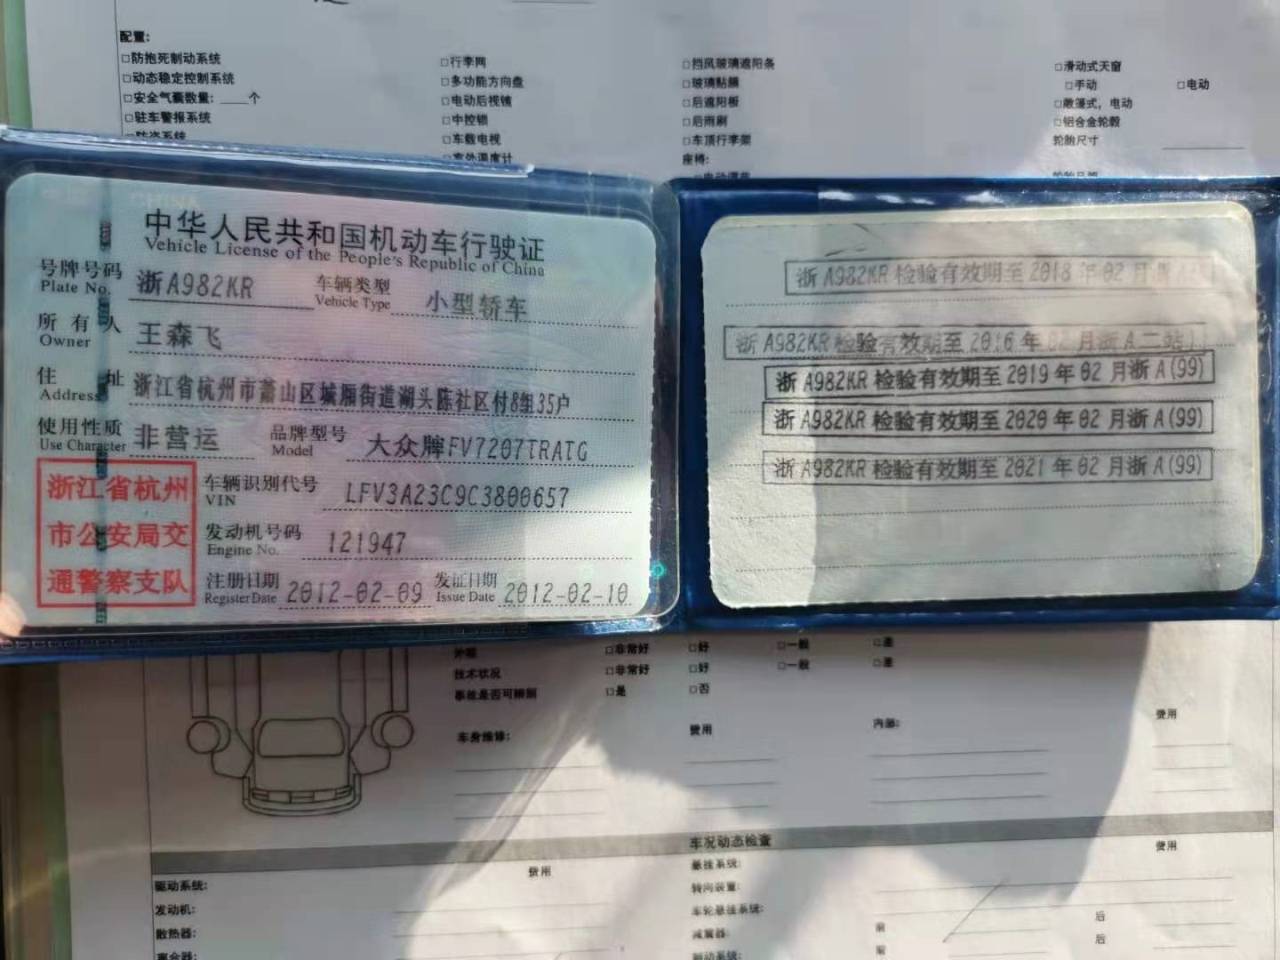 配置:
□防抱死制动系统
□行李网
□挡风玻璃遮阳条
□滑动式天窗
□动态稳定控制系统
□多功能方向盘
□玻璃贴膜
□手动 □电动
□安全气囊数量: ____个
□电动后视镜
□后遮阳板
□敞篷式，电动
□驻车警报系统
□中控锁
□后雨刷
□铝合金轮毂
□防盗系统
□车载电视
□车顶行李架
轮胎尺寸
□室外温度计
座椅:
CHINA
中华人民共和国机动车行驶证
Vehicle License of the People's Republic of China
号牌号码 浙A982KR 车辆类型 小型轿车
Plate No. Vehicle Type
所有人 王森飞
Owner
住址 浙江省杭州市萧山区城厢街道湖头陈社区付8组35户
Address
使用性质 非营运 品牌型号 大众牌FV7207TRATG
Use Character Model
浙江省杭州
市公安局交
通警察支队
车辆识别代号 LFV3A23C9C3800657
VIN
发动机号码 121947
Engine No.
注册日期 2012-02-09 发证日期 2012-02-10
Register Date Issue Date
浙 A982KR 检验有效期至 2018 年 02 月
浙 A982KR 检验有效期至 2016 年 02 月浙 A 二站
浙 A982KR 检验有效期至 2019 年 02 月浙 A(99)
浙 A982KR 检验有效期至 2020 年 02 月浙 A(99)
浙 A982KR 检验有效期至 2021 年 02 月浙 A(99)
外观 □非常好 □好 □一般 □差
技术状况 □非常好 □好 □一般 □差
事故是否可辨别 □是 □否
车身维修: 费用 内部: 费用
车况动态检查
费用 费用
驱动系统: 悬挂系统:
发动机: 转向装置:
散热器: 车轮悬挂系统: 前 后
离合器: 减震器: 前 后
制动系统: